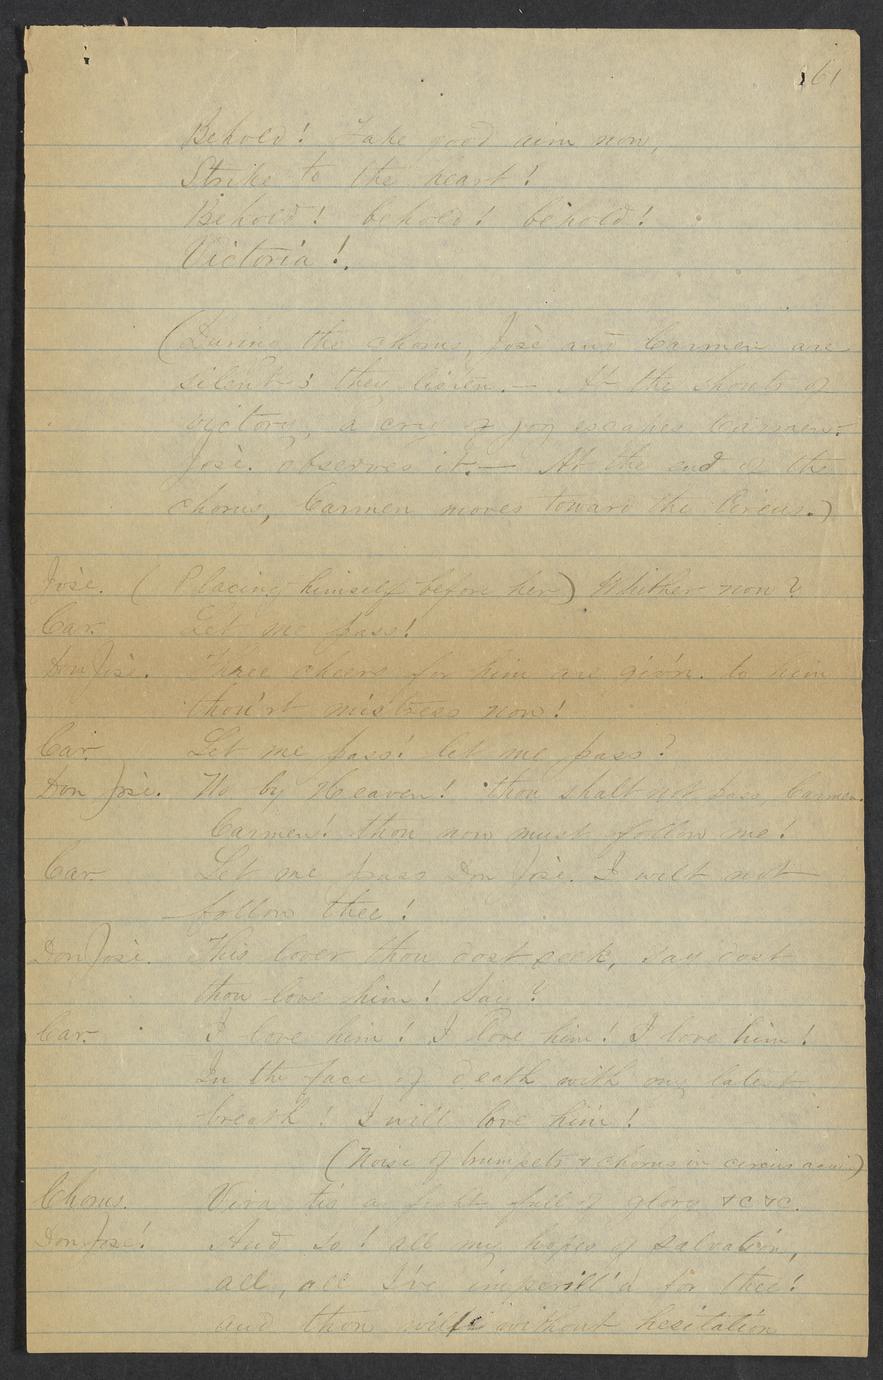 61
Behold! Take good aim now,
Strike to the heart!
Behold! behold! behold!
Victoria!.
(During the chorus, Josè and Carmen are
silent; they listen.— At the shouts of
victory, a cry of joy escapes Carmen:
Josè. observes it.— At the end of the
chorus, Carmen moves toward the Circus.)
Josè. (Placing himself before her) Whither now?
Car. Let me pass!
Don Josè. Three cheers for him are giv'n. to him
thou'rt mistress now!
Car. Let me pass! let me pass?
Don Josè. No by Heaven! thou shalt not pass, Carmen.
Carmen! thou now must follow me!
Car. Let me pass Don Josè. I will not
follow thee!
Don Josè. This lover thou dost seek, say dost
thou love him! Say?
Car. I love him! I love him! I love him!
In the face of death with my latest
breath! I will love him!
(Noise of trumpets & chorus in circus again)
Chorus. Viva tis a fight full of glory &c &c.
Don Josè! And so! all my hopes of salvation,
all, all I've imperill'd for thee!
and thou wilt without hesitation